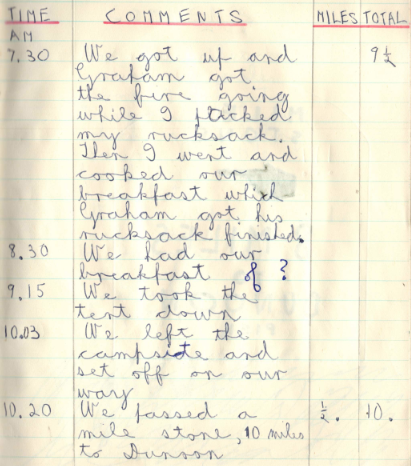 TIME COMMENTS MILES TOTAL
AM
7.30 We got up and 9½
Graham got
the fire going
while I packed
my rucksack.
Then I went and
cooked our
breakfast which
Graham got his
rucksack finished.
8.30 We had our
breakfast of ?
9.15 We took the
tent down
10.03 We left the
campsite and
set off on our
way
10.20 We passed a ½. 10.
mile stone, 10 miles
to Dunoon